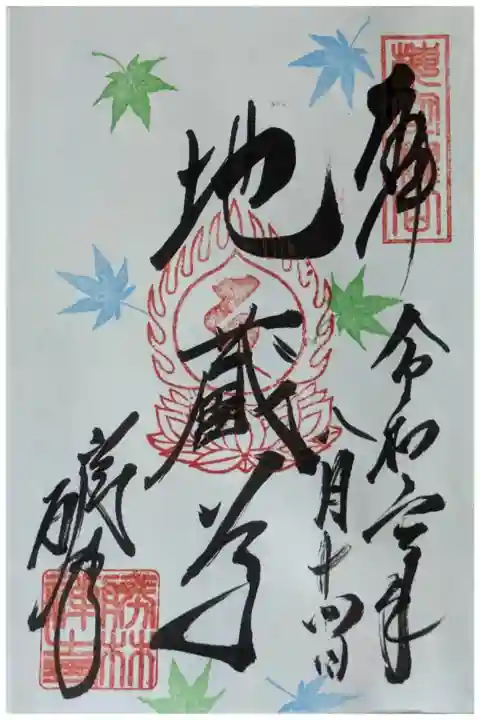 奉拝
令和六年
八月十四日
地蔵尊
勝林
禅寺